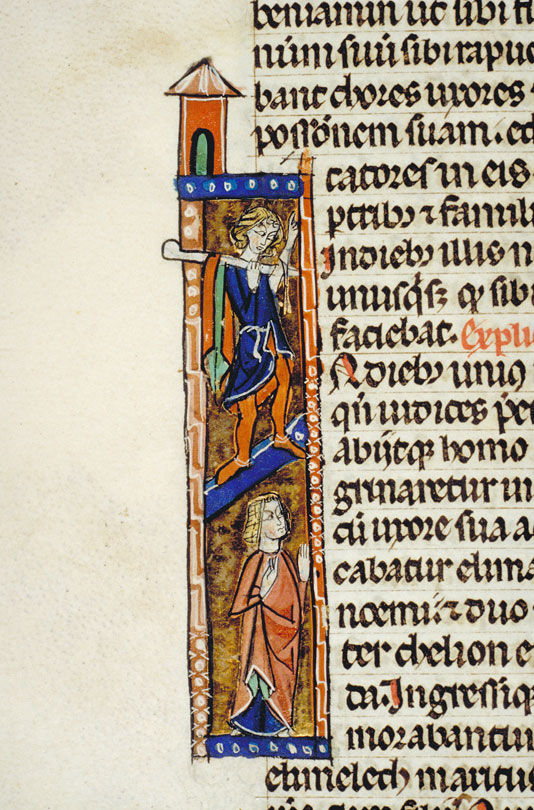 beniamin ut sibi fu
num suu sibi rapue
bant chores uxores
possōnem suam. ed
catores in eis
ptribꝫ ⁊ famili
Indiebꝫ illis n
unusqͥsqꝫ qꝫ sibi
faciebat. Expli
diebꝫ unius
qn̄ iudices p̄e
abijtqꝫ homo
grinaretur in
cū uxore sua a
cabatur elime
noemi: ⁊ duo
ter chelion e
da. Ingressiqꝫ
morabantur
elimelech maritus